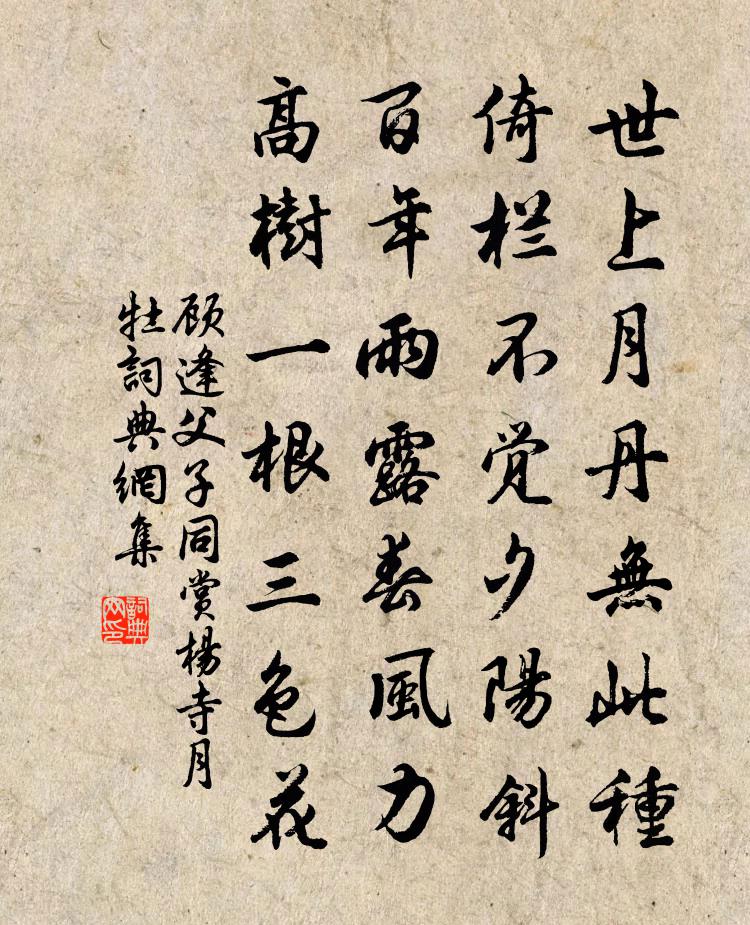 世上月丹無此種
倚栏不觉夕陽斜
百年雨露春風力
高樹一根三色花
顾逢父子同赏楊寺月
牡詞典網集
詞典
网印